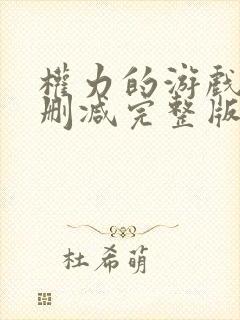 權力的游戲
刪減完整版
杜希萌